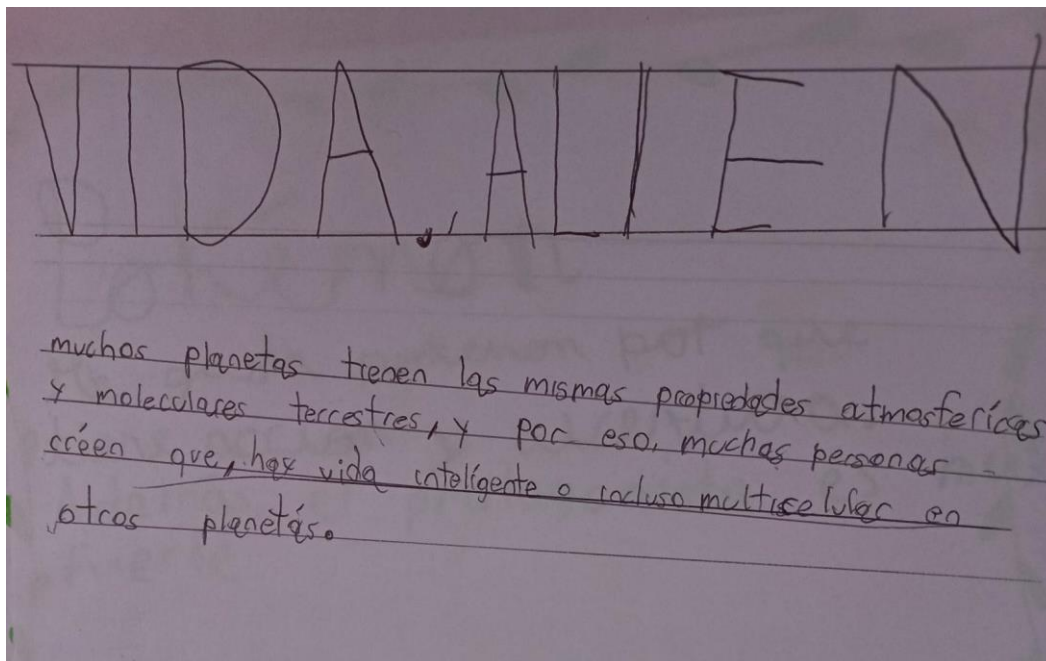 VIDA., ALIEN
muchos planetas tienen las mismas propiedades atmosferícas
y moleculares terrestres, y por eso, muchas personas
créen que, hay vida inteligente o incluso multiselular en
otros planetás.